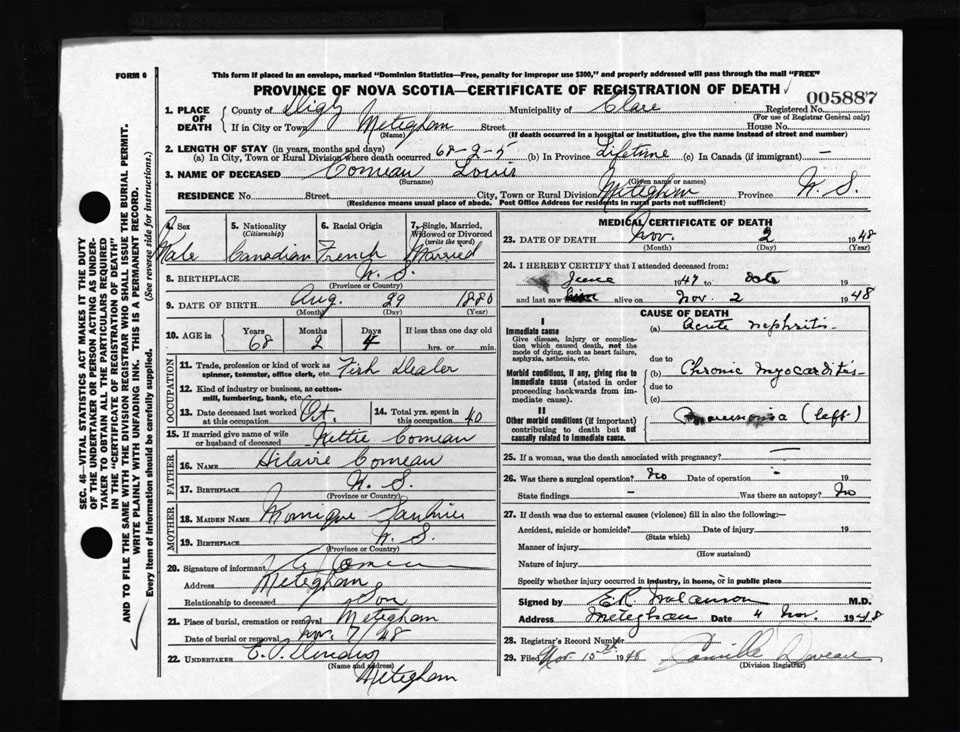 FORM 6
This form if placed in an envelope, marked "Dominion Statistics—Free, penalty for improper use $300," and properly addressed will pass through the mail "FREE"
PROVINCE OF NOVA SCOTIA—CERTIFICATE OF REGISTRATION OF DEATH
005887
1. PLACE OF DEATH County of Digby Municipality of Clare Registered No.
(For use of Registrar General only)
If in City or Town Meteghan Street House No.
(Name) (If death occurred in a hospital or institution, give the name instead of street and number)
2. LENGTH OF STAY (in years, months and days)
(a) In City, Town or Rural Division where death occurred 68-2-5 (b) In Province Lifetime (c) In Canada (if immigrant) —
3. NAME OF DECEASED Comeau Louis
(Surname) (Given name or names)
RESIDENCE No. Street City, Town or Rural Division Meteghan Province N. S.
(Residence means usual place of abode. Post Office Address for residents in rural parts not sufficient)
4. Sex Male
5. Nationality (Citizenship) Canadian
6. Racial Origin French
7. Single, Married, Widowed or Divorced (write the word) Married
8. BIRTHPLACE N. S.
(Province or Country)
9. DATE OF BIRTH Aug. 29 1880
(Month) (Day) (Year)
10. AGE in Years 68 Months 2 Days 4 If less than one day old hrs. or min.
OCCUPATION
11. Trade, profession or kind of work as spinner, teamster, office clerk, etc. Fish Dealer
12. Kind of industry or business, as cotton-mill, lumbering, bank, etc.
13. Date deceased last worked at this occupation Oct.
14. Total yrs. spent in this occupation 40
15. If married give name of wife or husband of deceased Nettie Comeau
FATHER
16. NAME Hilaire Comeau
17. BIRTHPLACE N. S.
(Province or Country)
MOTHER
18. MAIDEN NAME Monique
19. BIRTHPLACE N. S.
(Province or Country)
20. Signature of informant Comeau
Address Meteghan
Relationship to deceased Son
21. Place of burial, cremation or removal Meteghan
Date of burial or removal Nov. 7/48
22. UNDERTAKER E. P.
(Name and address)
Meteghan
MEDICAL CERTIFICATE OF DEATH
23. DATE OF DEATH Nov. 2 1948
(Month) (Day) (Year)
24. I HEREBY CERTIFY that I attended deceased from:
June 1947 to date 19
and last saw him alive on Nov. 2 1948
CAUSE OF DEATH
I
Immediate cause (a) Acute nephritis
Give disease, injury or complication which caused death, not the mode of dying, such as heart failure, asphyxia, asthenia, etc.
due to
Morbid conditions, if any, giving rise to immediate cause (stated in order proceeding backwards from immediate cause). (b) Chronic myocarditis
due to
(c)
II
Other morbid conditions (if important) contributing to death but not causally related to immediate cause. Pneumonia (left)
25. If a woman, was the death associated with pregnancy? —
26. Was there a surgical operation? No Date of operation - 19
State findings - Was there an autopsy? No
27. If death was due to external causes (violence) fill in also the following:—
Accident, suicide or homicide? Date of injury 19
(State which)
Manner of injury
(How sustained)
Nature of injury
Specify whether injury occurred in industry, in home, or in public place
Signed by E.R. M.D.
Address Meteghan Date 4 Nov. 1948
28. Registrar's Record Number
29. Filed Nov. 15th 1948 Camille Deveau
(Division Registrar)
SEC. 46—VITAL STATISTICS ACT MAKES IT THE DUTY
OF THE UNDERTAKER OR PERSON ACTING AS UNDER-
TAKER TO OBTAIN ALL THE PARTICULARS REQUIRED
IN THE "CERTIFICATE OF REGISTRATION OF DEATH"
AND TO FILE THE SAME WITH THE DIVISION REGISTRAR WHO SHALL ISSUE THE BURIAL PERMIT.
WRITE PLAINLY WITH UNFADING INK. THIS IS A PERMANENT RECORD.
Every item of information should be carefully supplied. (See reverse side for instructions.)